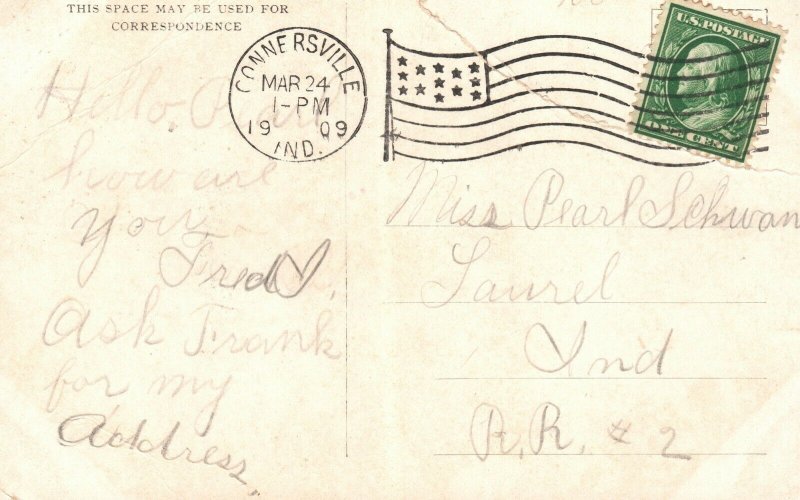 THIS SPACE MAY BE USED FOR
CORRESPONDENCE
CONNERSVILLE
MAR 24
1-PM
1909
IND.
U.S. POSTAGE
ONE CENT
Hello,
how are
you
Fred
Ask Frank
for my
Address,
Miss Pearl Schwan
Laurel
Ind
R.R. # 2